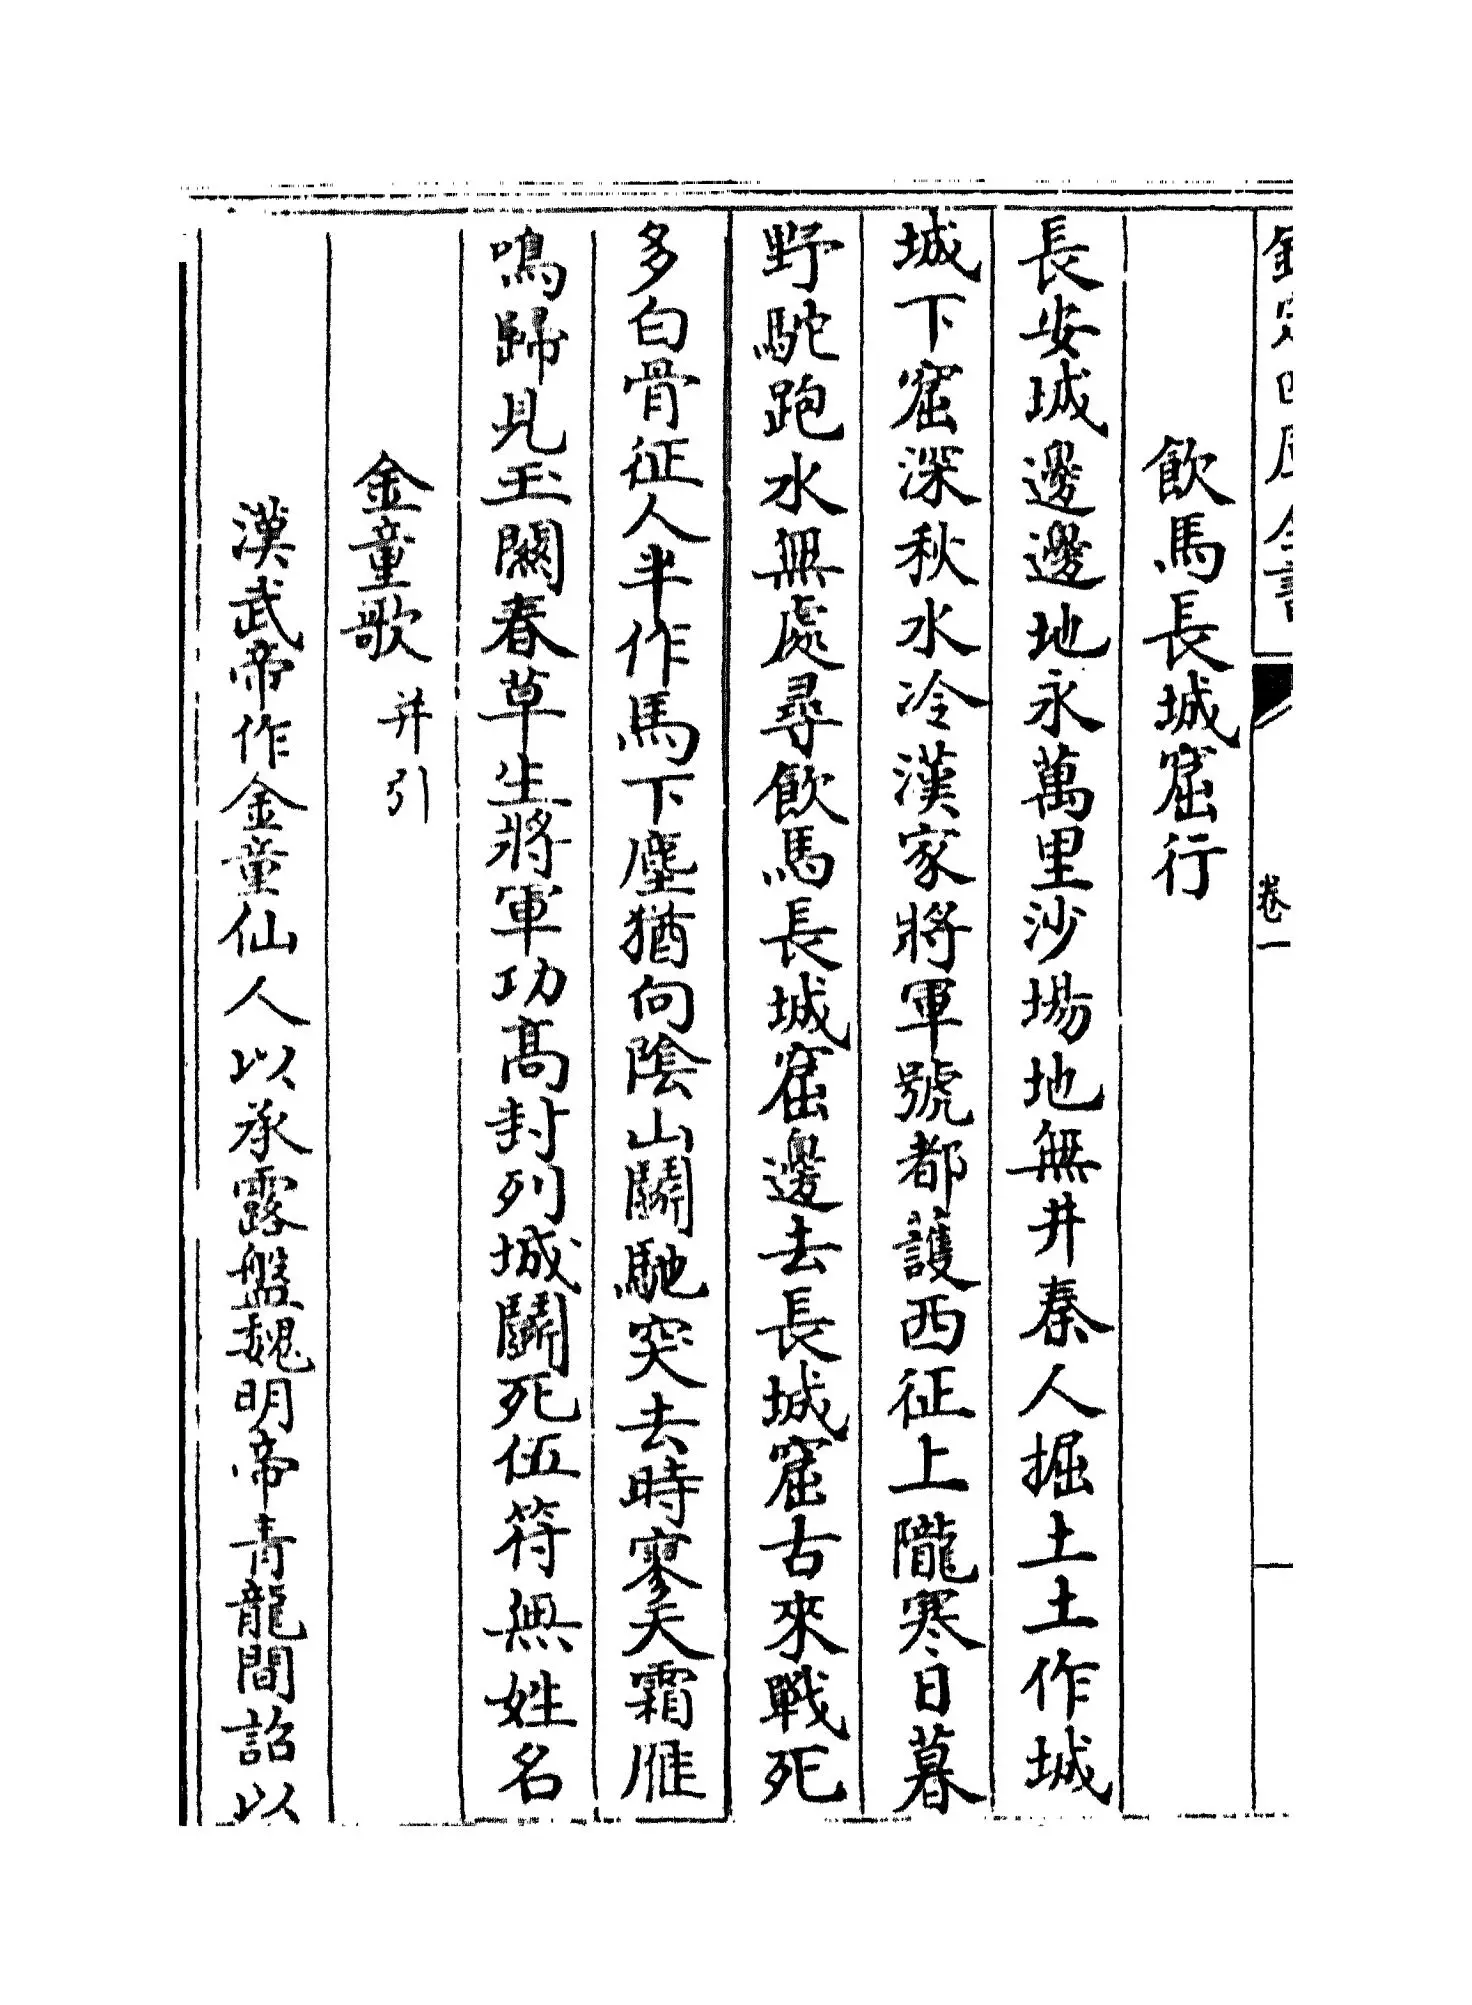 欽定四庫全書
卷一
飲馬長城窟行
長安城邊邊地永萬里沙場地無井秦人掘土土作城
城下窟深秋水冷漢家將軍號都䕶西征上隴寒日暮
野駝跑水無處尋飲馬長城窟邊去長城窟古來戰死
多白骨征人半作馬下塵猶向陰山鬭馳突去時寥天霜雁
鳴歸見玉闗春草生將軍功髙封列城鬭死伍符無姓名
金童歌并引
漢武帝作金童仙人以承露盤魏明帝青龍間詔以